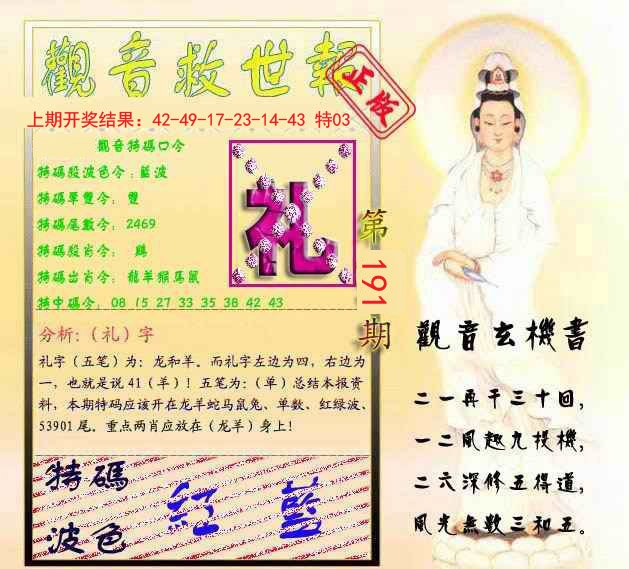 觀音救世報
正版
上期开奖结果：42-49-17-23-14-43 特03
觀音特碼口令
特碼段波色令：藍波
特碼單雙令： 雙
特碼尾數令：2469
特碼段肖令： 鷄
特碼出肖令：龍羊猴馬鼠
特中碼令：08 15 27 33 35 38 42 43
礼
第191期
分析:（礼）字
礼字（五笔）为：龙和羊。而礼字左边为四，右边为
一，也就是说 41（羊）！五笔为：（单）总结本报资
料，本期特码应该开在龙羊蛇马鼠兔、单数、红绿波、
53901 尾。重点两肖应放在（龙羊）身上！
特碼
紅 藍
波色
觀音玄機書
二一再干三十回，
一二風趣九投機，
二六深修五得道，
風光無數三和五。